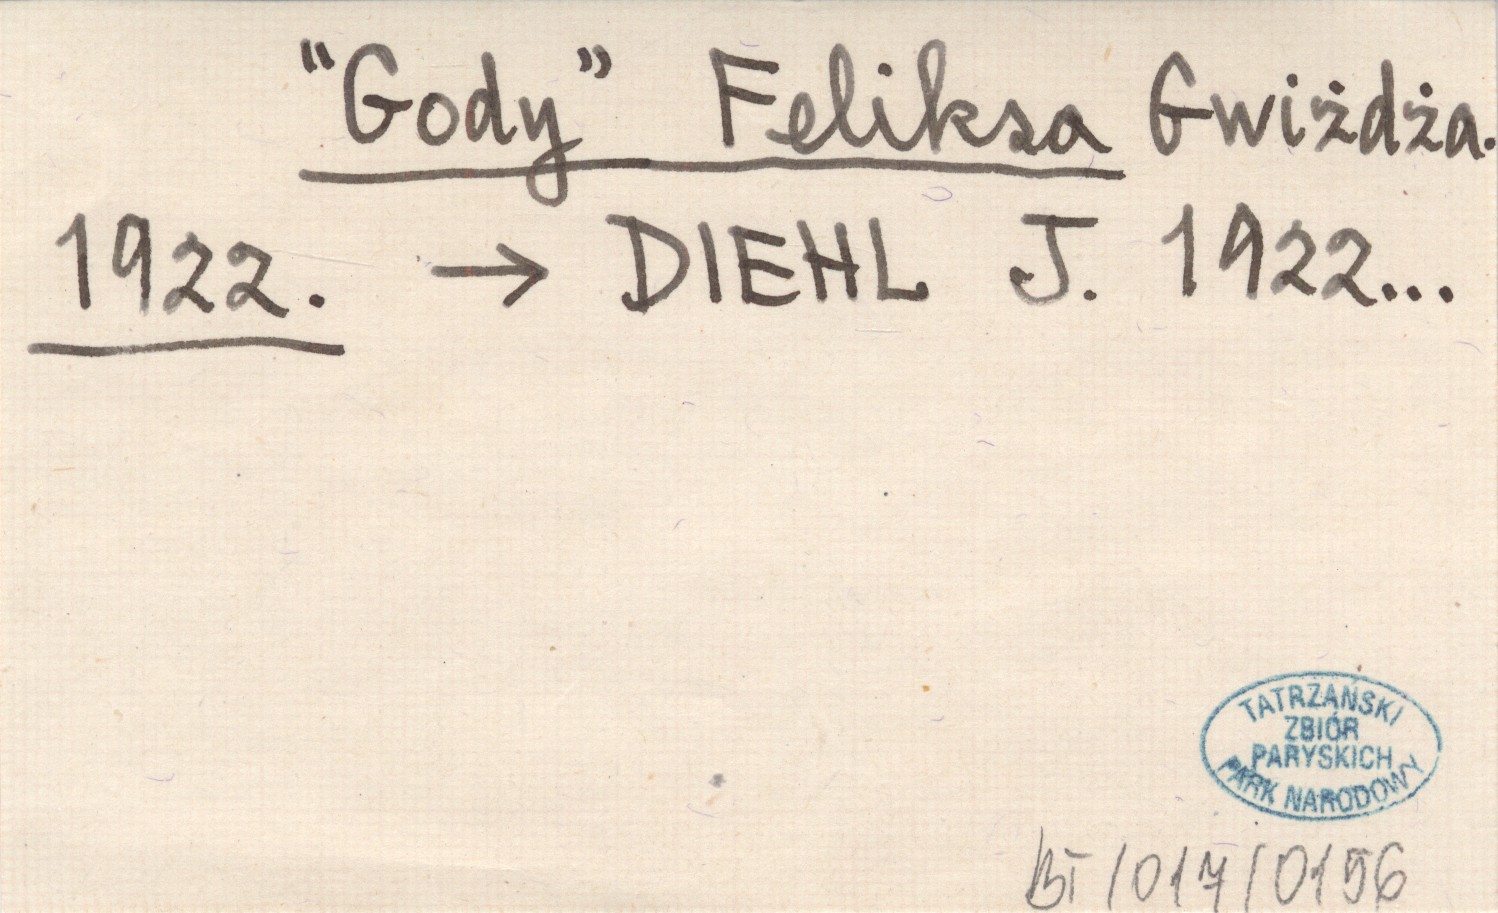 "Gody" Feliksa Gwiżdża.
1922. → DIEHL J. 1922...
TATRZAŃSKI
ZBIÓR
PARYSKICH
PARK NARODOWY
BT/017/0156